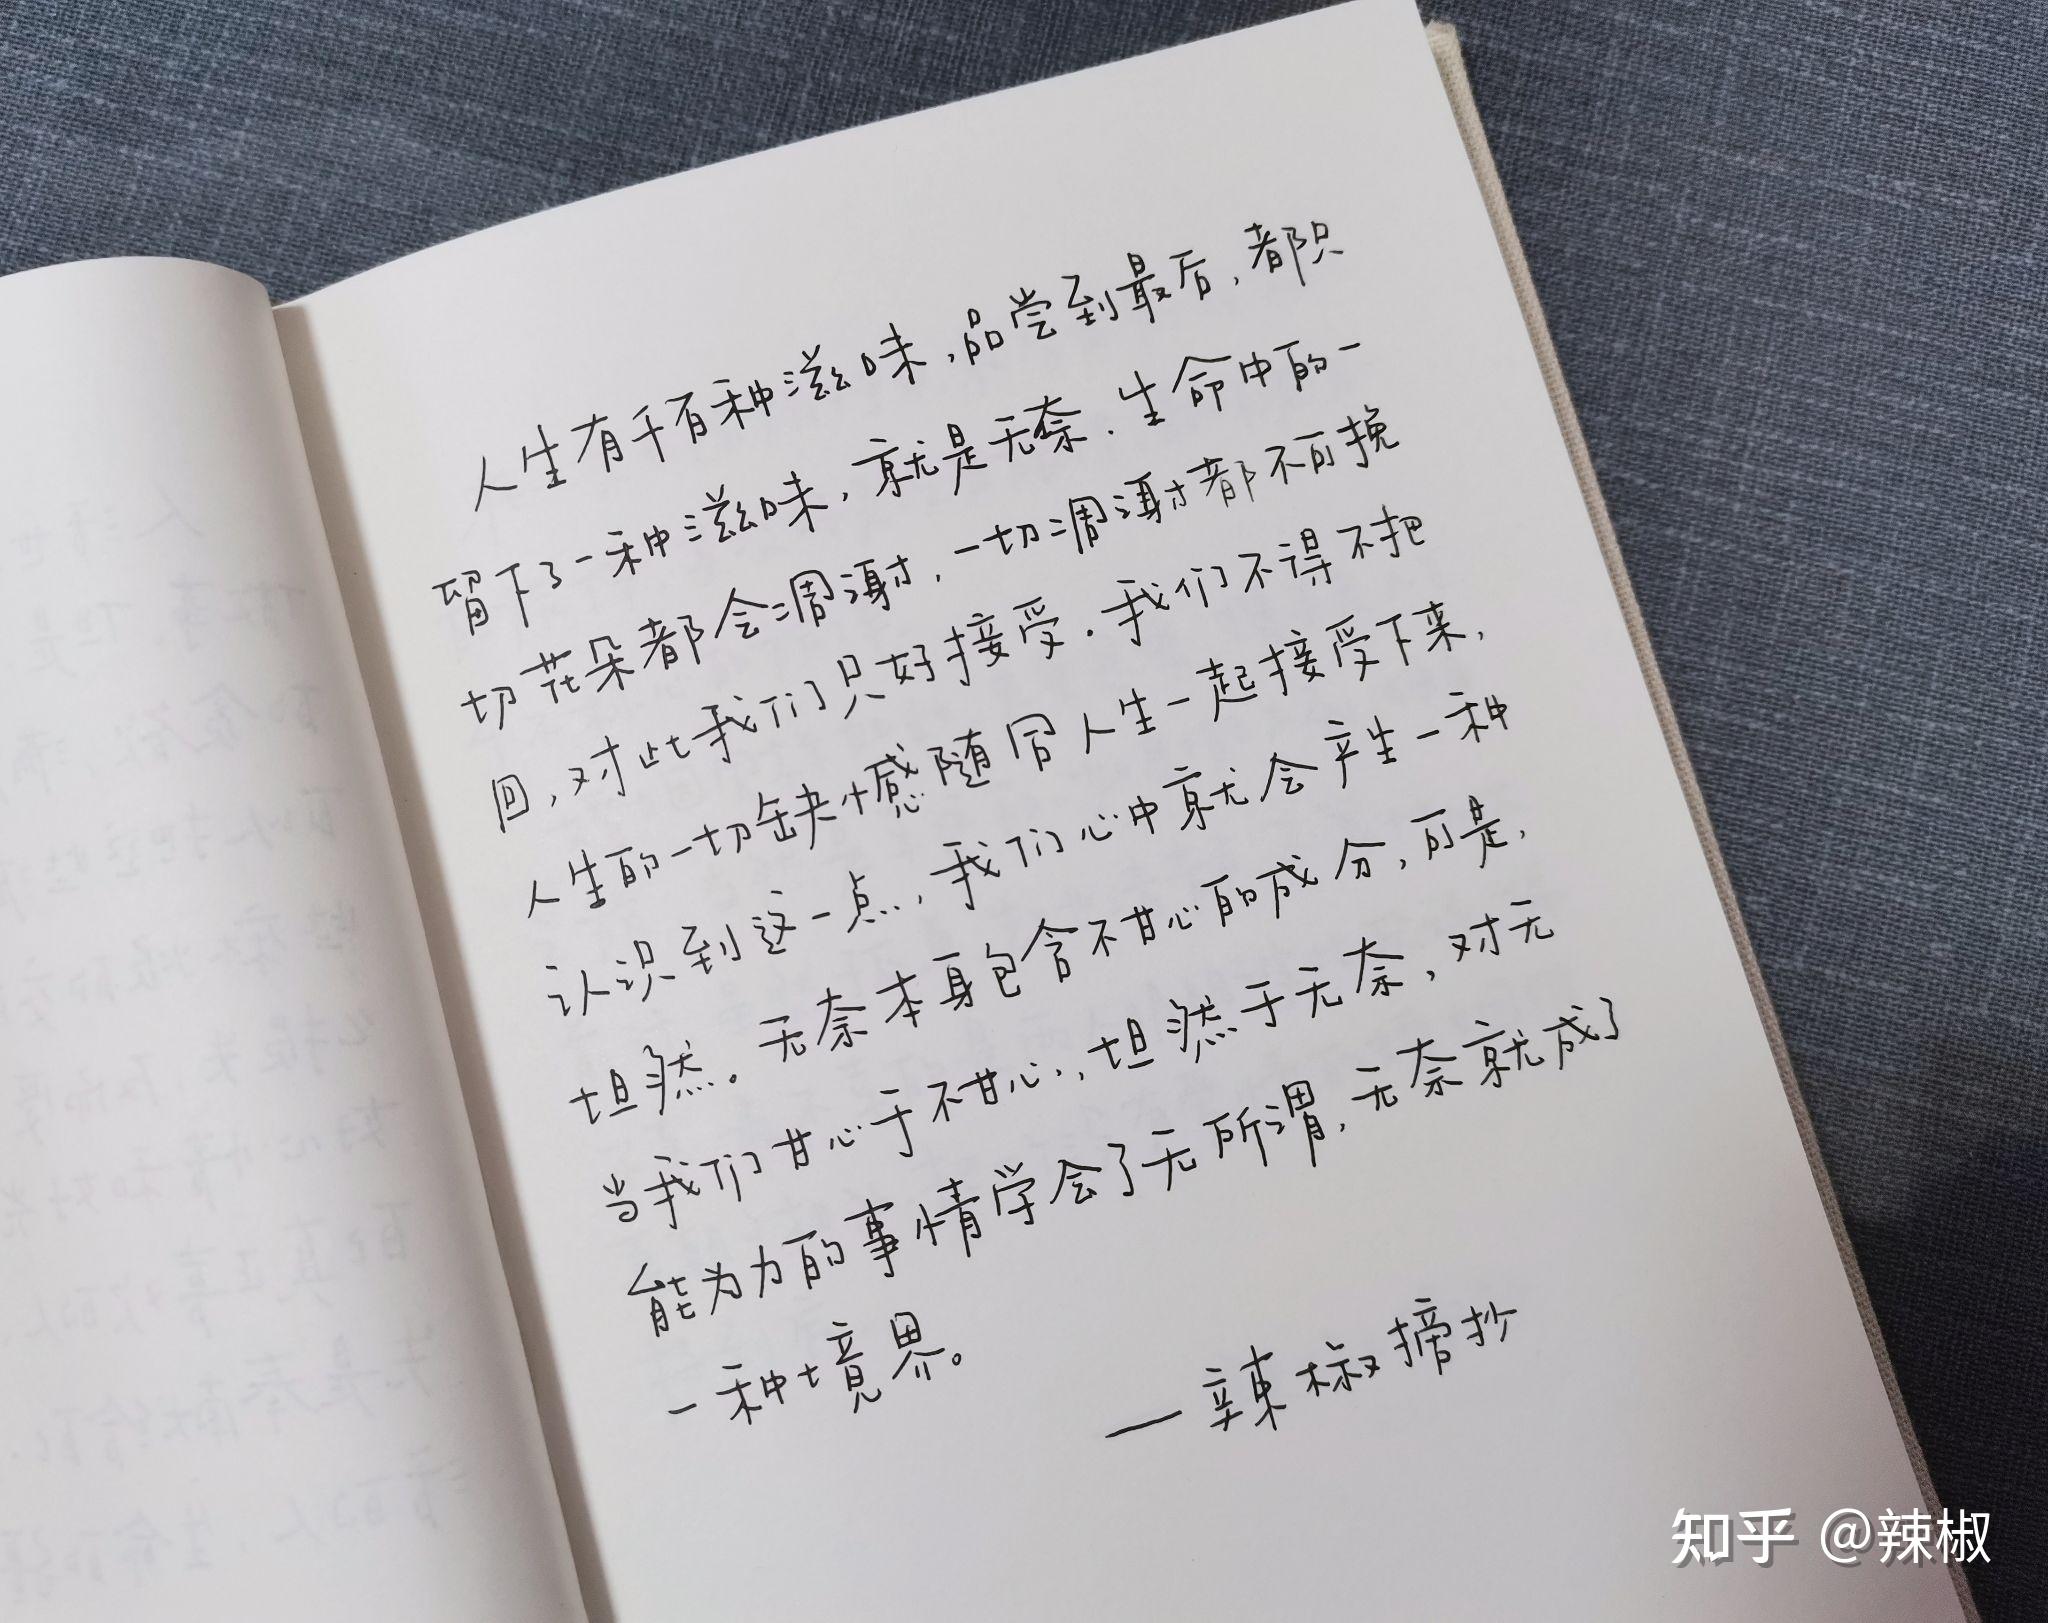 人生有千百种滋味，品尝到最后，都只
留下了一种滋味，就是无奈．生命中的一
切花朵都会凋谢，一切凋谢都不可挽
回，对此我们只好接受．我们不得不把
人生的一切缺憾随同人生一起接受下来，
认识到这一点，我们心中就会产生一种
坦然。无奈本身包含不甘心的成分，可是，
当我们甘心于不甘心，坦然于无奈，对无
能为力的事情学会了无所谓，无奈就成了
一种境界。
—辣椒摘抄
知乎 @辣椒